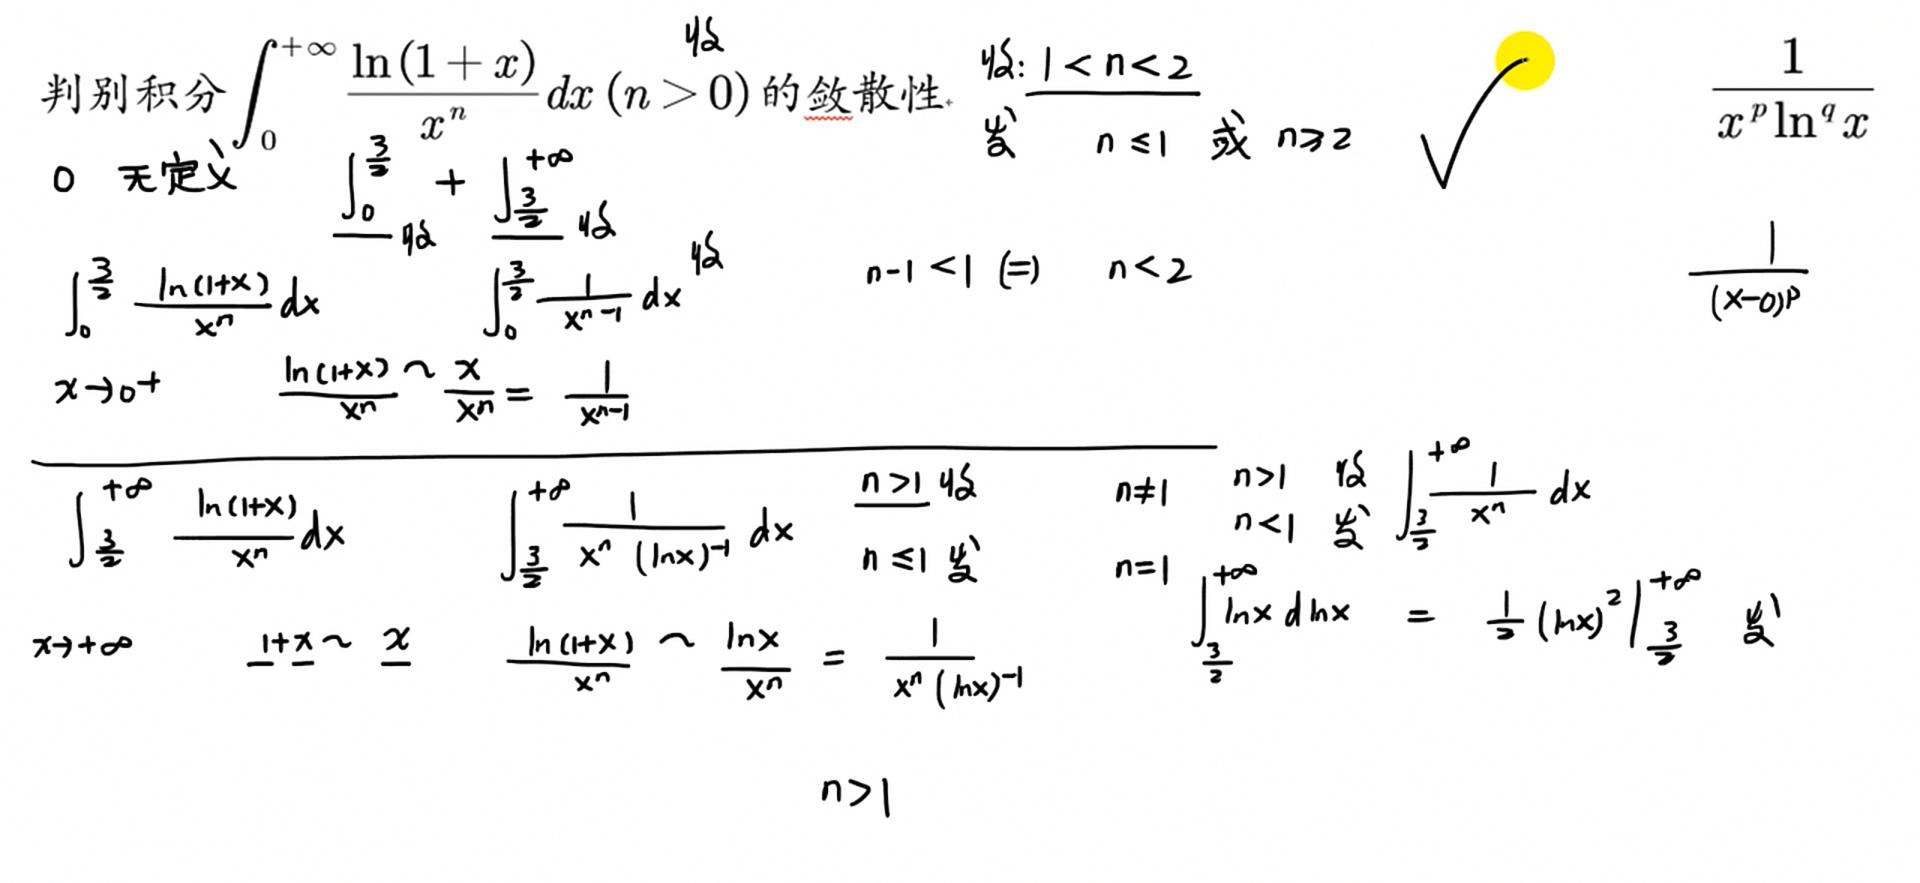 判别积分 ∫₀^{+∞} ln(1+x)/xⁿ dx (n>0) 的敛散性. 收
收: 1<n<2
发 n≤1 或 n≥2
1/(x^p ln^q x)
0 无定义 ∫₀^{3/2} 收 + ∫_{3/2}^{+∞} 收
∫₀^{3/2} ln(1+x)/xⁿ dx ∫₀^{3/2} 1/x^{n-1} dx 收 n-1<1 (=) n<2 1/(x-0)^p
x→0+ ln(1+x)/xⁿ ~ x/xⁿ = 1/x^{n-1}
∫_{3/2}^{+∞} ln(1+x)/xⁿ dx ∫_{3/2}^{+∞} 1/(xⁿ (lnx)^{-1}) dx n>1 收 n≠1 n>1 收 ∫_{3/2}^{+∞} 1/xⁿ dx
n≤1 发 n<1 发
n=1 ∫_{3/2}^{+∞} lnx dlnx = 1/2 (lnx)² |_{3/2}^{+∞} 发
x→+∞ 1+x ~ x ln(1+x)/xⁿ ~ lnx/xⁿ = 1/(xⁿ (lnx)^{-1})
n>1